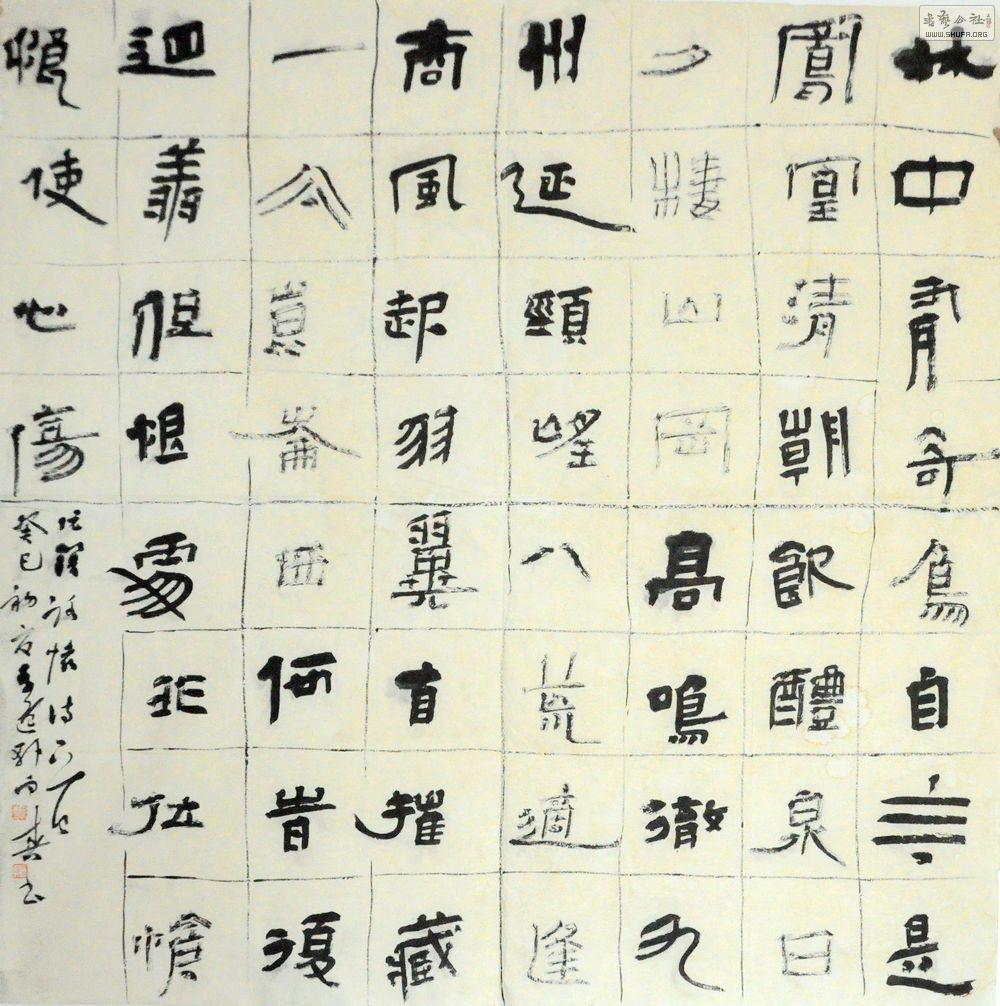 林中有奇鳥自言是
鳳凰清朝飲醴泉日
夕棲山岡高鳴徹九
州延頸望八荒適逢
商風起羽翼自摧藏
一去崑崙西何時復
迴翔但恨處非位愴
悢使心傷
阮籍詠懷詩
癸巳初夏
书艺公社
WWW.SHUFA.ORG